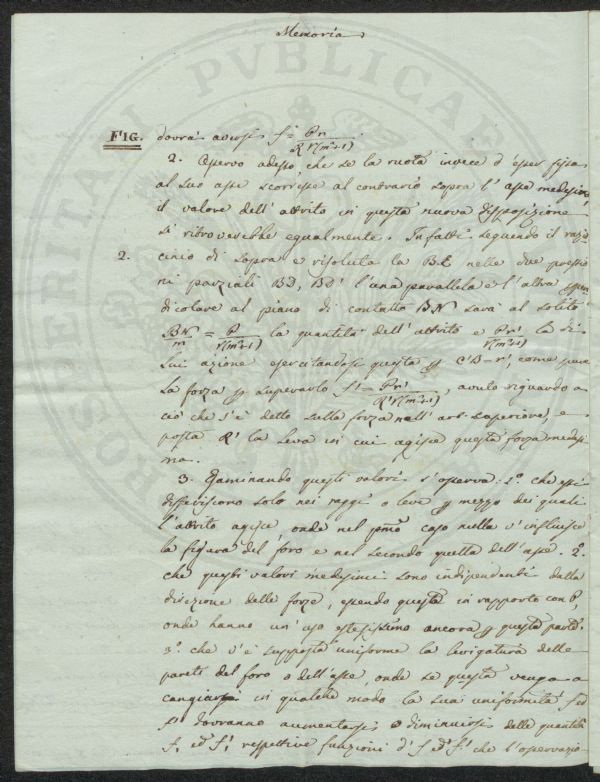 Memoria
FIG. dovrà aversi f = Pr / R √(m²+1)
2. Osservo adesso che se la ruota invece d'esser fissa
al suo asse scorresse al contrario sopra l'asse medesimo,
il valore dell'attrito in questa nuova disposizione
si ritroverebbe egualmente. Infatti seguendo il razio-
2. cinio di sopra e risoluta la BE nelle due pressio
ni parziali BD, BD' l'una parallela e l'altra
dicolare al piano di contatto BN sarà al solito
BN/m = P/√(m²+1) la quantità dell'attrito e Pr'/√(m²+1) la di
lui azione esercitandosi questa p C'B = r', come pure
la forza p superarlo f' = Pr' / R'√(m²+1), avuto riguardo a
ciò che s'è detto sulla forza nell' art. superiore, e
posta R' la leva in cui agisce questa forza medesi
ma.
3. Esaminando questi valori s'osserva: 1.º che essi
differiscono solo nei raggi o leve p mezzo dei quali
l'attrito agisce, onde nel pmo caso nulla v'influisce
la figura del foro e nel secondo quella dell'asse. 2.º
che questi valori medesimi sono indipendenti dalla
direzione delle forze, essendo questa in rapporto con P,
onde hanno un'uso estesissimo ancora p questa parte.
3.º che v'è supposta uniforme la levigatura delle
pareti del foro o dell'asse, onde se questa venga a
cangiarsi in qualche modo la sua uniformità f ed
f' dovranno aumentarsi o diminuirsi delle quantità
f, ed f', respettive funzioni d'f ed f' che l'osservazio-
PROSPERITATI PVBLICAE